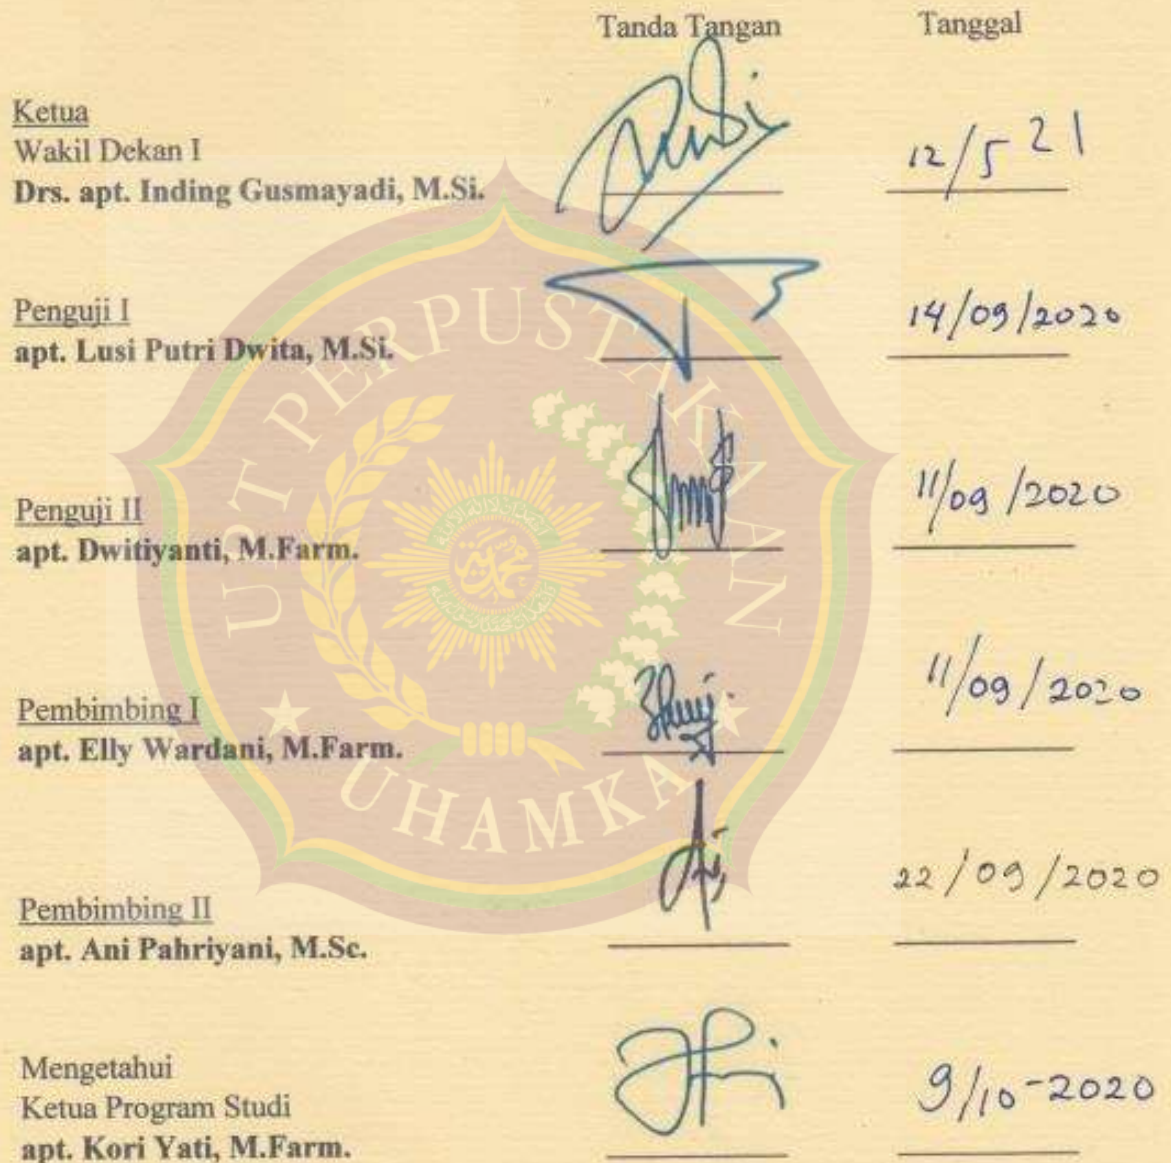 Tanda Tangan Tanggal
Ketua
Wakil Dekan I
Drs. apt. Inding Gusmayadi, M.Si. 12/5 21
Penguji I
apt. Lusi Putri Dwita, M.Si. 14/09/2020
Penguji II
apt. Dwitiyanti, M.Farm. 11/09/2020
Pembimbing I
apt. Elly Wardani, M.Farm. 11/09/2020
Pembimbing II
apt. Ani Pahriyani, M.Sc. 22/09/2020
Mengetahui
Ketua Program Studi
apt. Kori Yati, M.Farm. 9/10-2020
UPT PERPUSTAKAAN
UHAMKA